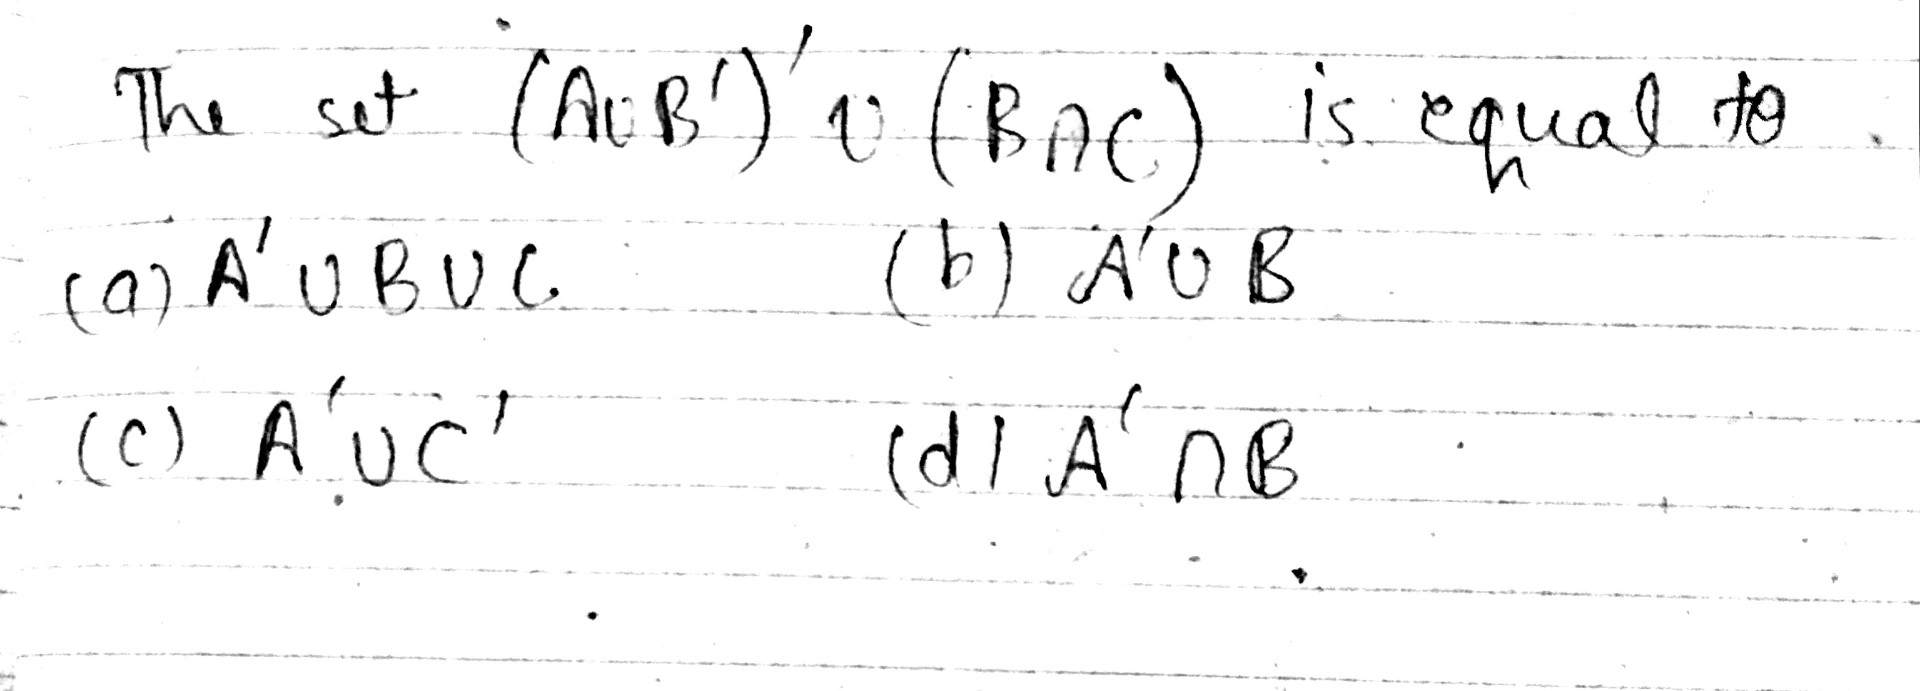 The set (A∪B')' ∪ (B∩C) is equal to.
(a) A' ∪ B ∪ C. (b) A' ∪ B
(c) A' ∪ C' (d) A' ∩ B